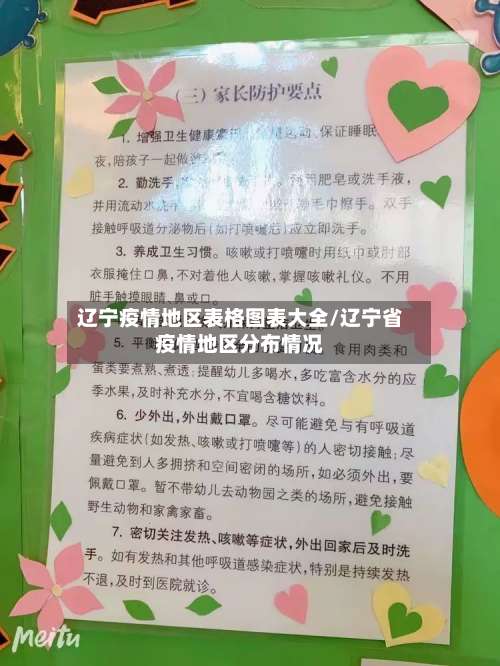 (三)家长防护要点
1. 增强卫生健康
运动、保证睡眠
夜,陪孩子一起做
2. 勤洗手
肥皂或洗手液,
并用流动水洗手
巾擦手。双手
接触呼吸道分泌物后(如打喷嚏后)应立即洗手。
3. 养成卫生习惯。咳嗽或打喷嚏时用纸巾或肘部
衣服掩住口鼻,不对着他人咳嗽,掌握咳嗽礼仪。不用
脏手触摸眼睛、鼻或口。
辽宁疫情地区表格图表大全/辽宁省
疫情地区分布情况
5. 平衡
食用肉类和
蛋类要煮熟、煮透;提醒幼儿多喝水,多吃富含水分的应
季水果,及时补充水分,不宜喝含糖饮料。
6. 少外出,外出戴口罩。尽可能避免与有呼吸道
疾病症状(如发热、咳嗽或打喷嚏等)的人密切接触;尽
量避免到人多拥挤和空间密闭的场所,如必须外出,要
佩戴口罩。暂不带幼儿去动物园之类的场所,避免接触
野生动物和家禽家畜。
7. 密切关注发热、咳嗽等症状,外出回家后及时洗
手。如有发热和其他呼吸道感染症状,特别是持续发热
不退,及时到医院就诊。
Meitu